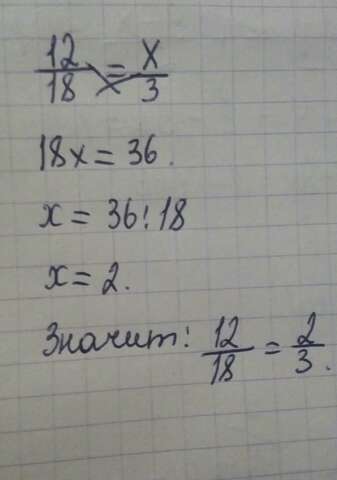 12/18 = x/3
18x = 36.
x = 36:18
x = 2.
Значит: 12/18 = 2/3.